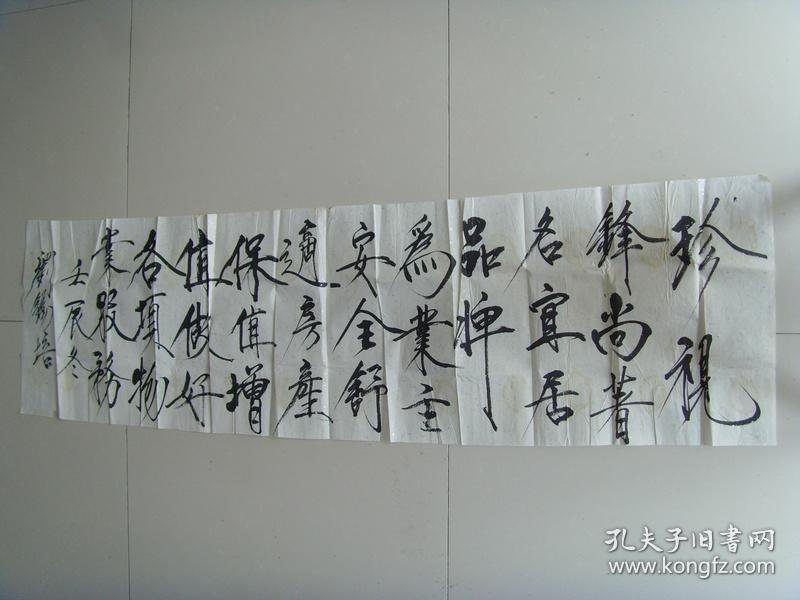 珍視
鋒尚著
名宜居
品牌
為業主
安全舒
適房產
保值增
值做好
各項物
業服務
壬辰冬
孔夫子旧书网
www.kongfz.com